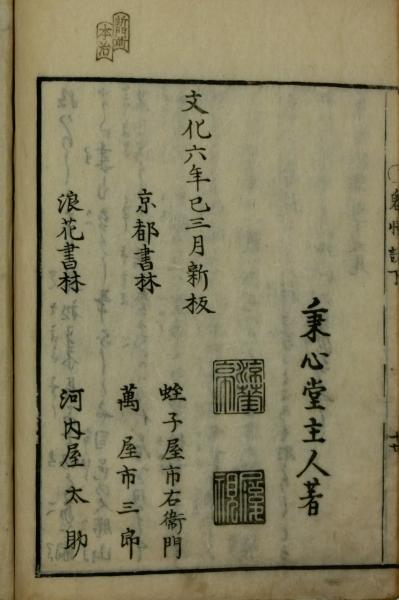 秉心堂主人著
文化六年巳三月新板
京都書林
蛭子屋市右衞門
萬屋市三郎
浪花書林
河内屋太助